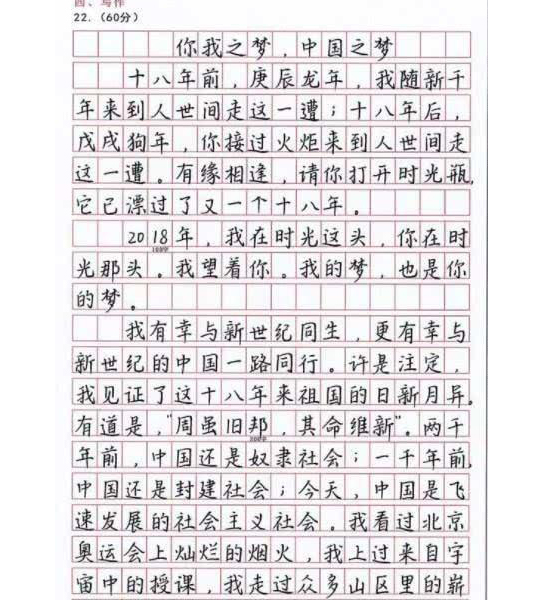 四、写作
22.（60分）
你我之梦，中国之梦
十八年前，庚辰龙年，我随新千
年来到人世间走这一遭；十八年后，
戊戌狗年，你接过火炬来到人世间走
这一遭。有缘相逢，请你打开时光瓶，
它已漂过了又一个十八年。
2018年，我在时光这头，你在时
光那头。我望着你。我的梦，也是你
的梦。
我有幸与新世纪同生，更有幸与
新世纪的中国一路同行。许是注定，
我见证了这十八年来祖国的日新月异。
有道是，“周虽旧邦，其命维新”。两千
年前，中国还是奴隶社会；一千年前，
中国还是封建社会；今天，中国是飞
速发展的社会主义社会。我看过北京
奥运会上灿烂的烟火，我上过来自宇
宙中的授课，我走过众多山区里的崭